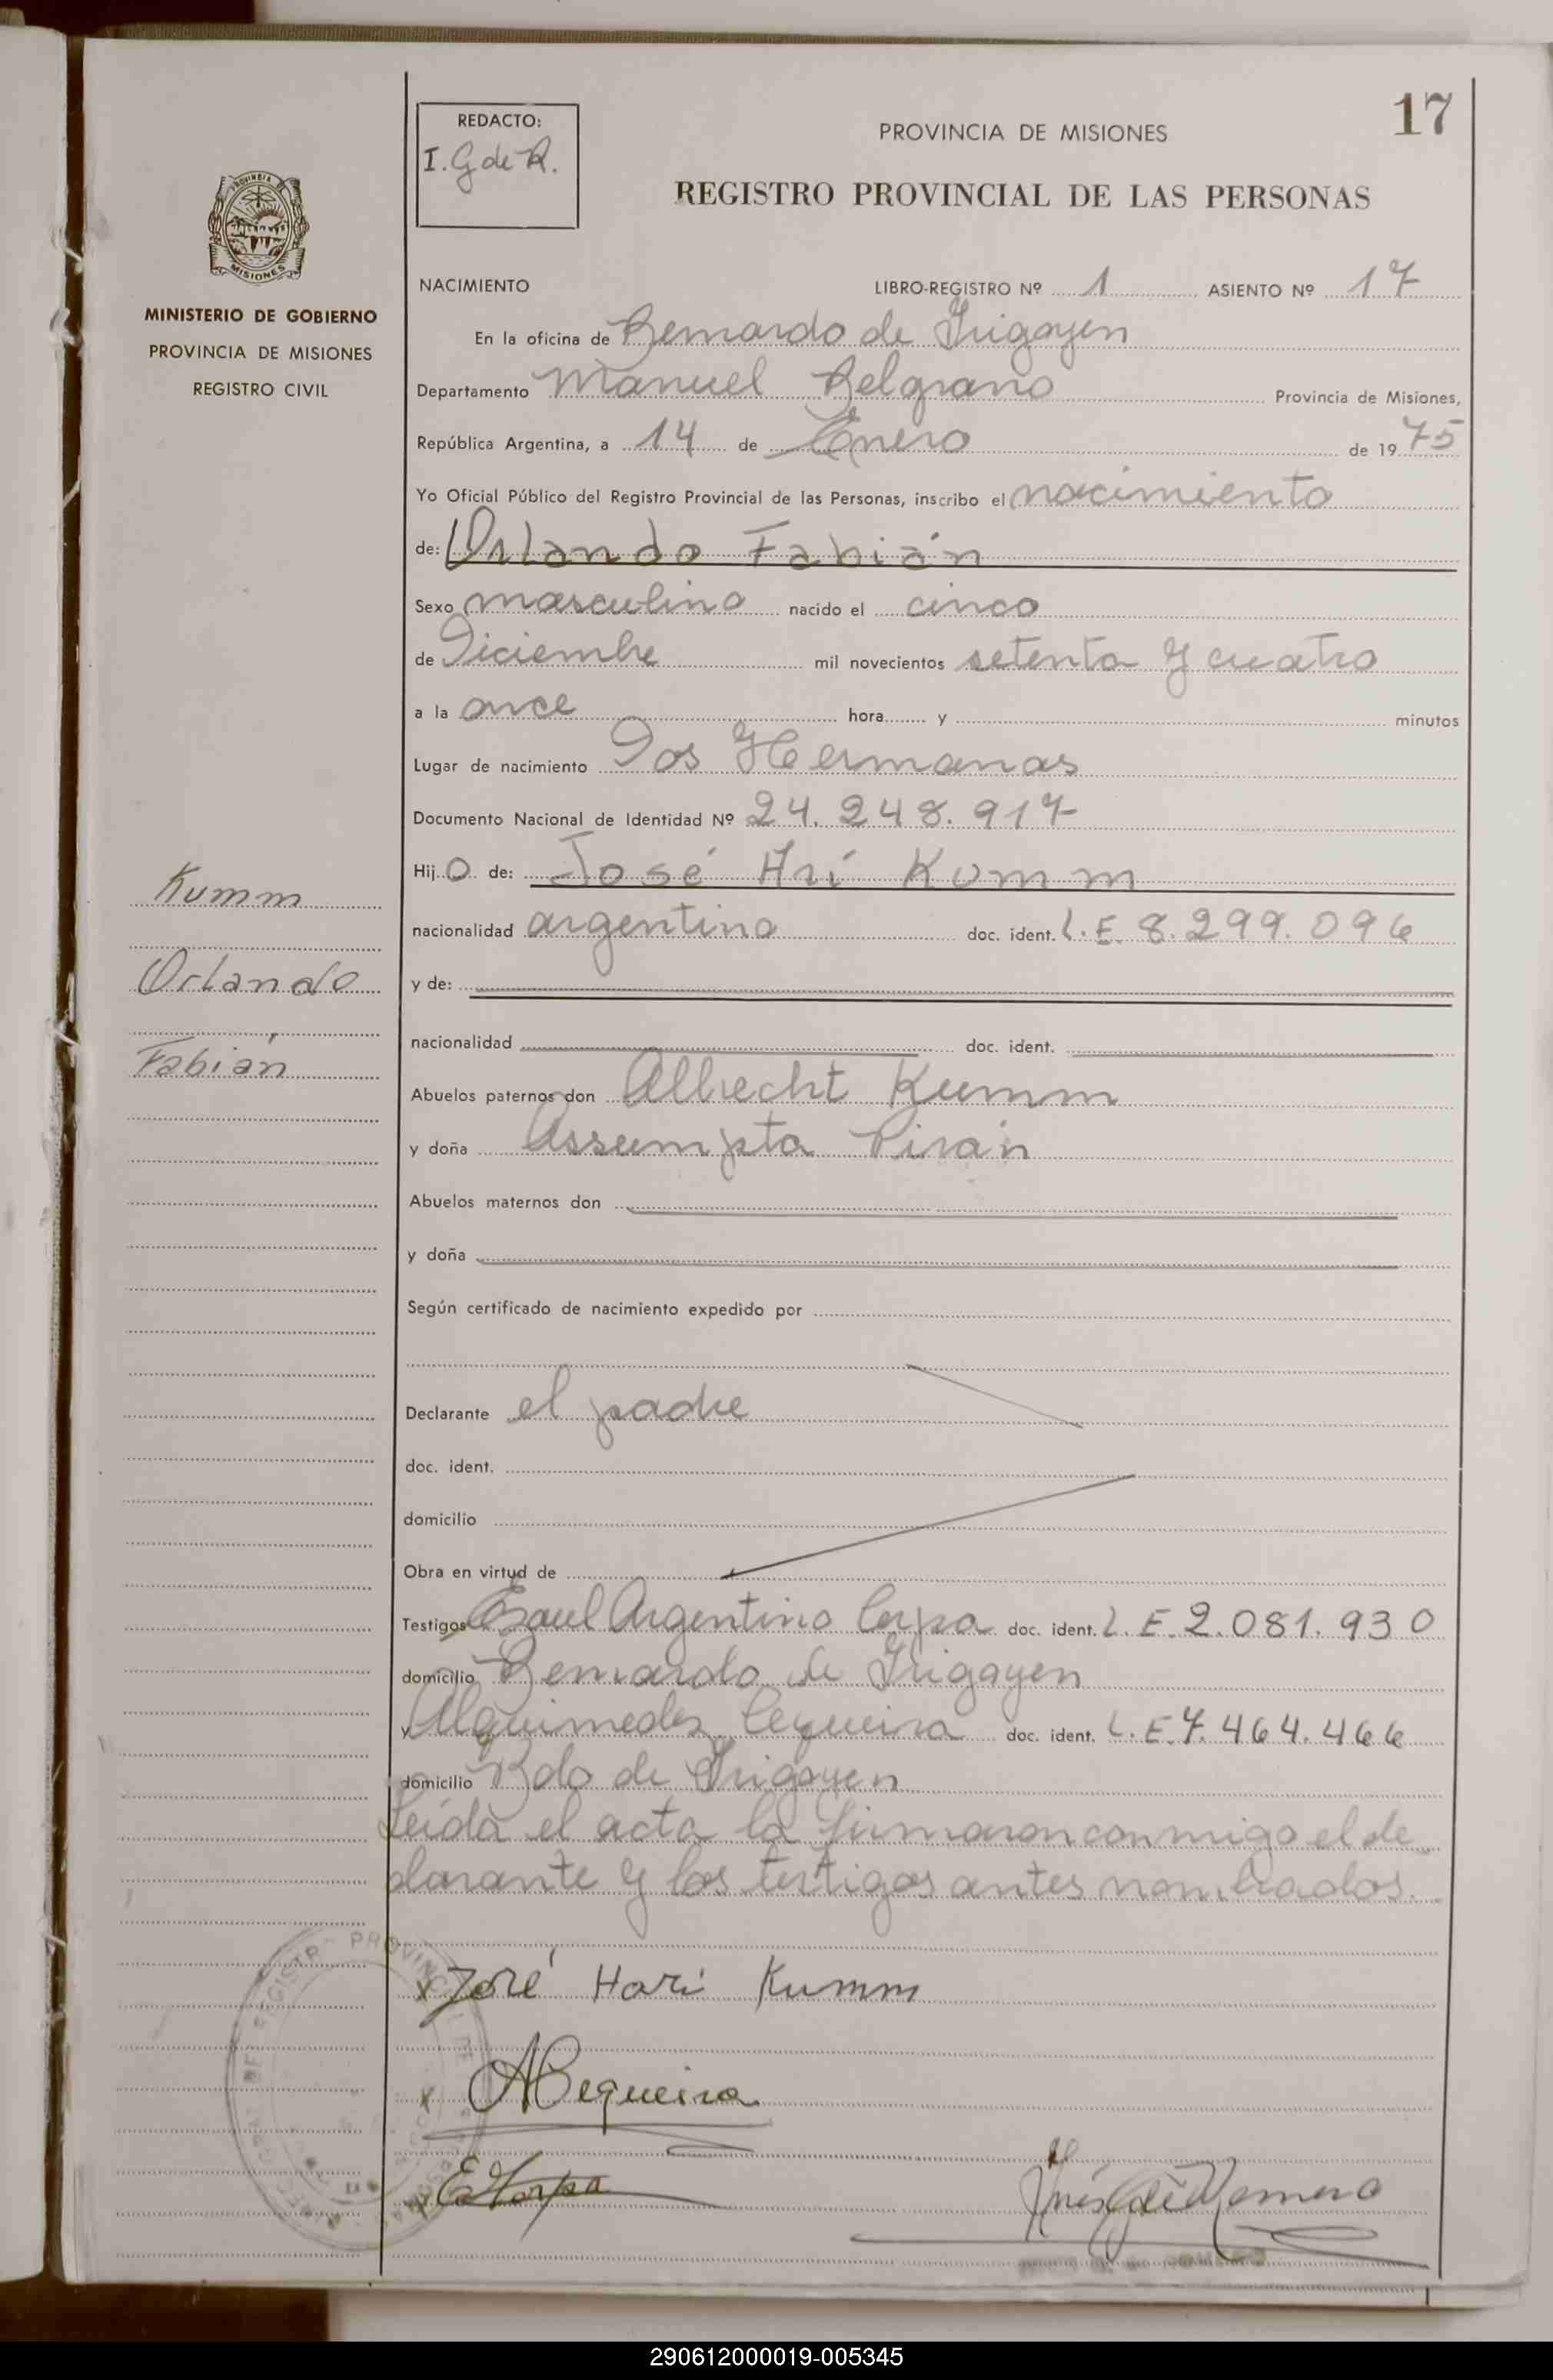 17
REDACTO:
I. G de R.
PROVINCIA DE MISIONES
REGISTRO PROVINCIAL DE LAS PERSONAS
PROVINCIA DE
MISIONES
MINISTERIO DE GOBIERNO
PROVINCIA DE MISIONES
REGISTRO CIVIL
NACIMIENTO LIBRO-REGISTRO Nº 1 ASIENTO Nº 17
En la oficina de Bernardo de Irigoyen
Departamento Manuel Belgrano Provincia de Misiones,
República Argentina, a 14 de Enero de 1975
Yo Oficial Público del Registro Provincial de las Personas, inscribo el nacimiento
de: Orlando Fabián
Sexo masculino nacido el cinco
de Diciembre mil novecientos setenta y cuatro
a la once hora y minutos
Lugar de nacimiento Dos Hermanas
Documento Nacional de Identidad Nº 24.248.917
Hijo de: José Ari Kumm
nacionalidad argentino doc. ident. L.E. 8.299.096
y de:
nacionalidad doc. ident.
Abuelos paternos don Albrecht Kumm
y doña Assumpta Pirán
Abuelos maternos don
y doña
Según certificado de nacimiento expedido por
Declarante el padre
doc. ident.
domicilio
Obra en virtud de
Testigos Esaul Argentino Corpa doc. ident. L.E. 2.081.930
domicilio Bernardo de Irigoyen
y Alquimedes Cequeira doc. ident. L.E. 7.464.466
domicilio Bdo de Irigoyen
Leída el acta la firmaron conmigo el de
clarante y los testigos antes nombrados.
Kumm
Orlando
Fabián
x José Hari Kumm
x ACequeira
x
Inés G de Romero
290612000019-005345